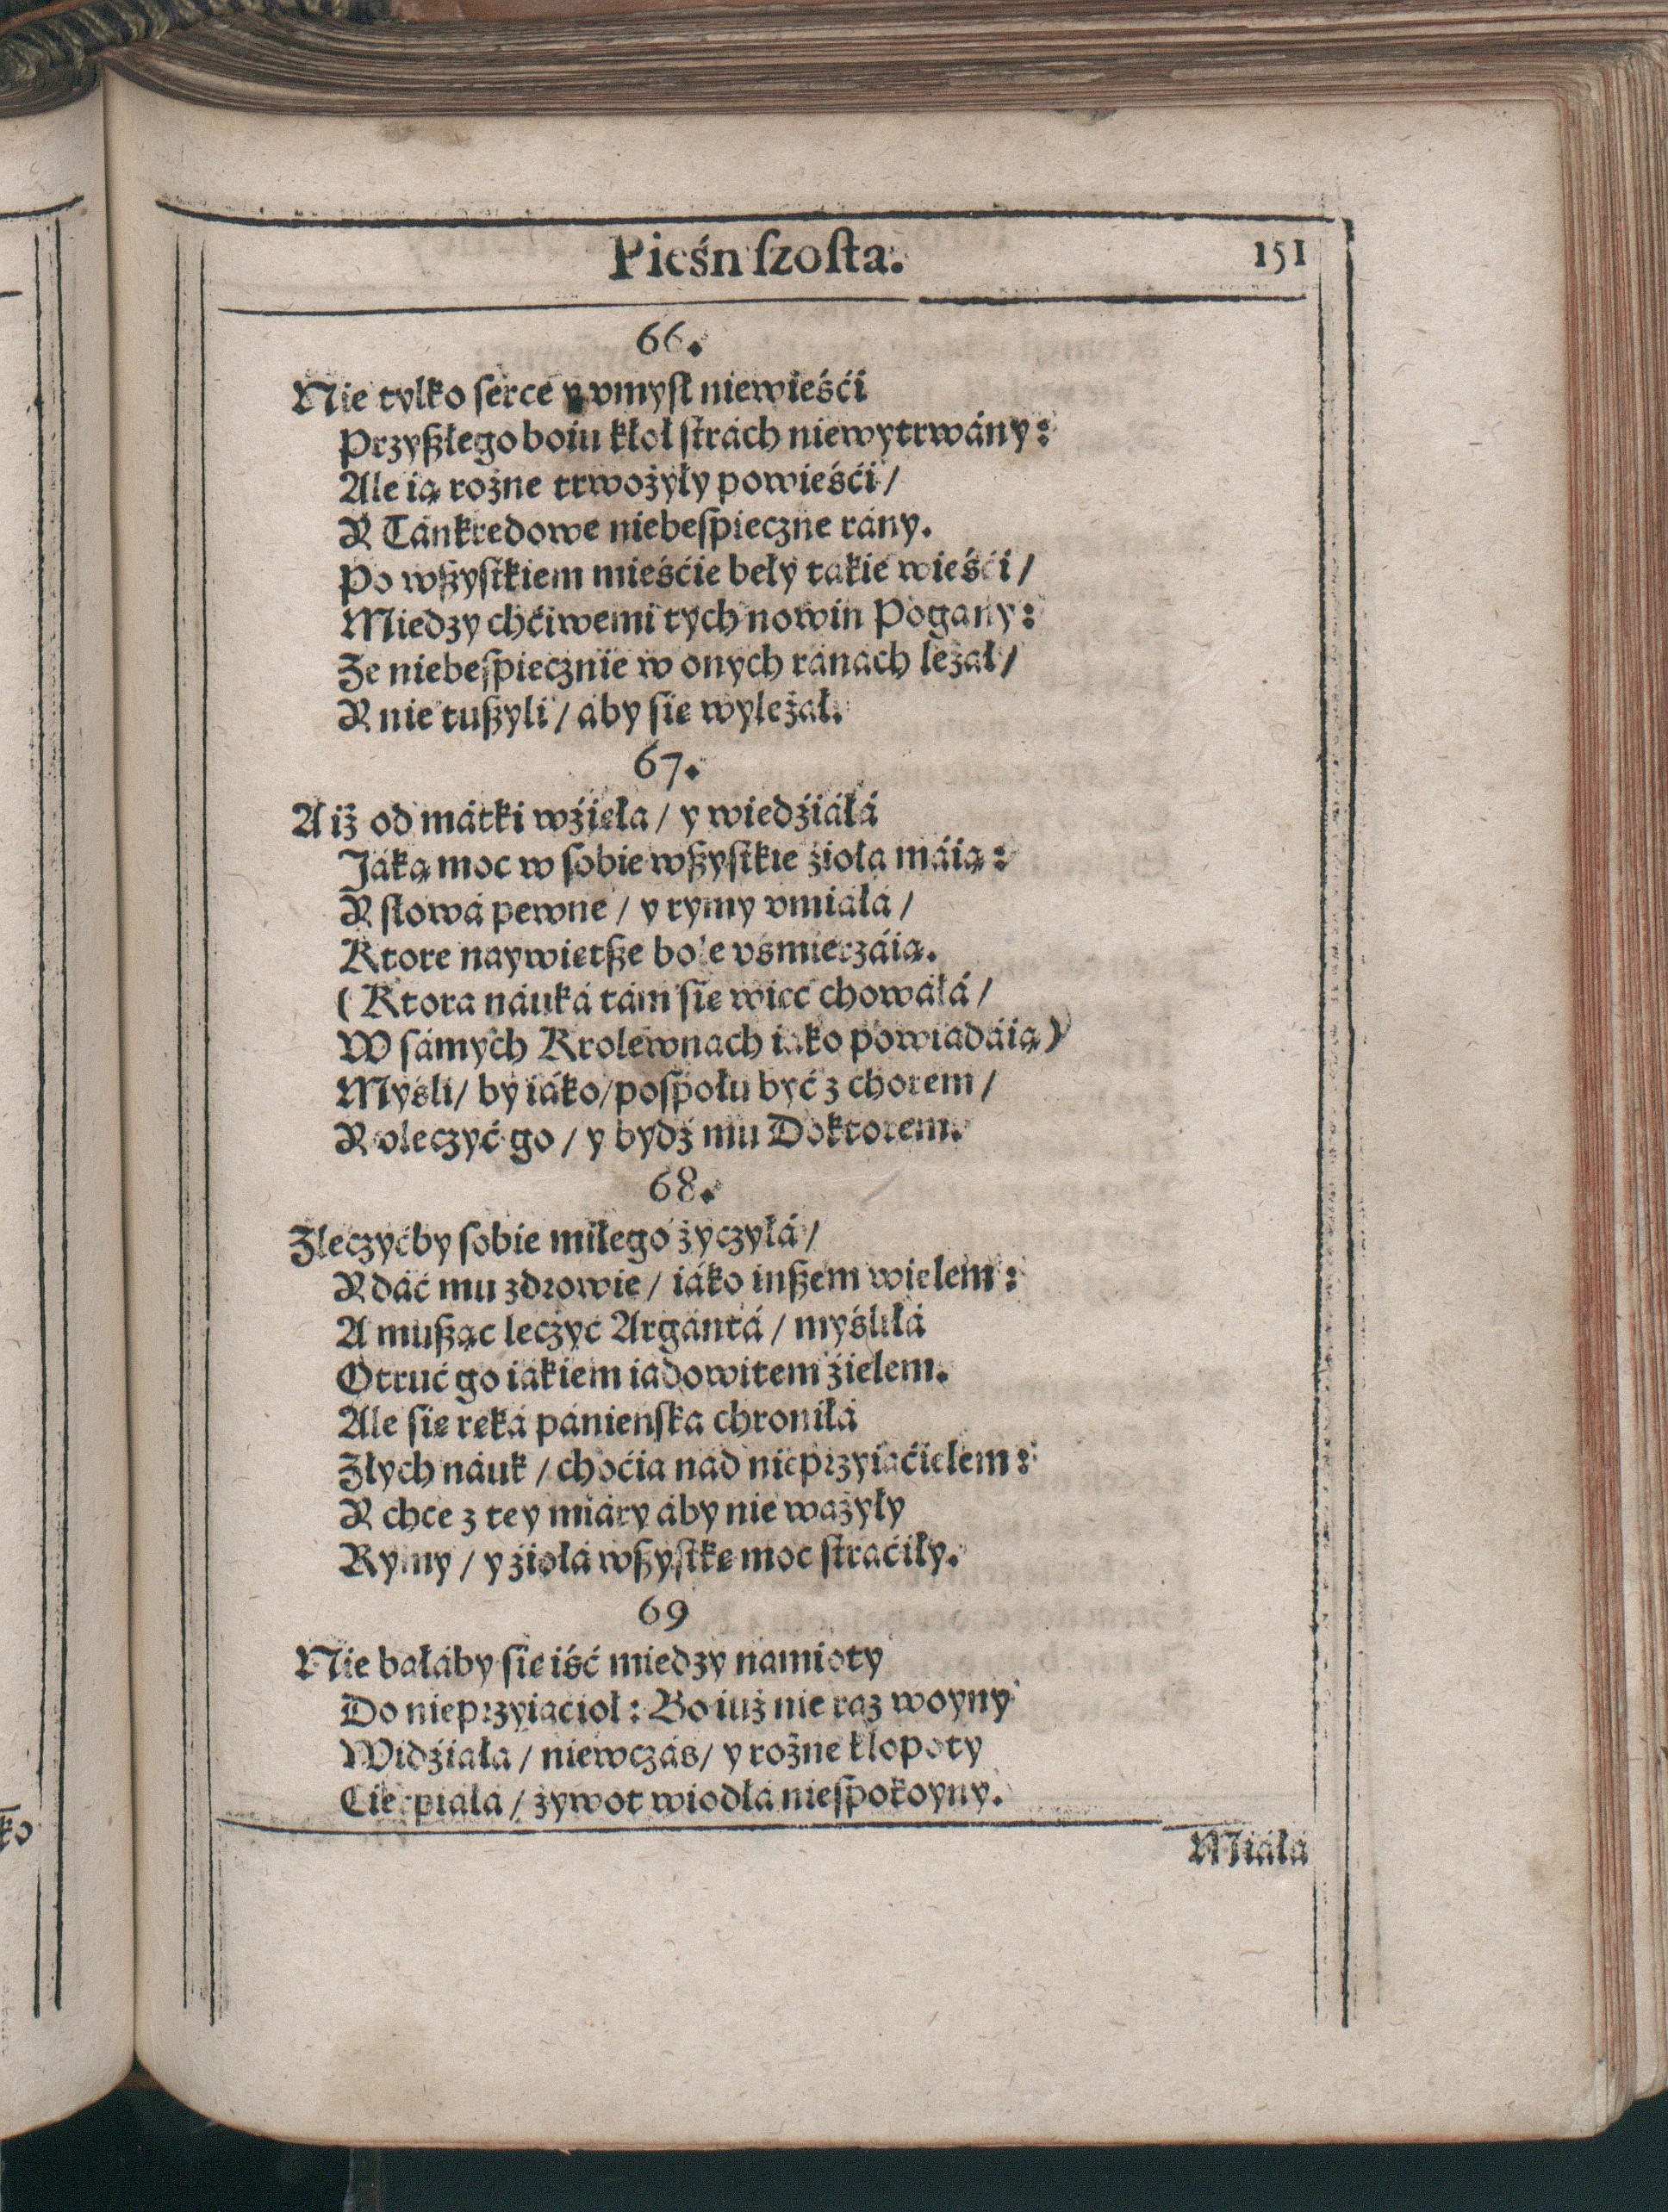 Pieśń ſzoſta. 151
66.
Nie tylko ſerce y vmyſł niewieśći
Przyßłego boiu kłoł ſtrách niewytrwány:
Ale ią rożne trwożyły powieśći /
Y Tánkredowe niebeſpieczne rány.
Po wßyſtkiem mieśćie beły tákie wieśći /
Miedzy chćiwemi tych nowin Pogány:
Że niebeſpiecznie w onych ránách leżał /
Y nie tußyli / áby ſie wyleżał.
67.
A iż od mátki wźięłá / y wiedźiáłá
Jáką moc w ſobie wßyſtkie źiołá máią:
Y ſłowá pewne / y rymy vmiáłá /
Ktore naywiętße bole vśmierzáią.
(Ktora náuká tám ſie więc chowáłá /
W ſámych Krolewnách iáko powiádáią)
Myśli / by iáko / poſpołu być z chorem /
Y vleczyć go / y bydź mu Doktorem.
68.
Zleczyćby ſobie miłego życzyłá /
Y dáć mu zdrowie / iáko inßem wielem:
A mußąc leczyć Argántá / myśliłá
Otruć go iákiem iádowitem źielem.
Ale ſie ręká pánieńſka chroniłá
Złych náuk / choćia nád nieprzyiaćielem:
Y chce z tey miáry áby nie ważyły
Rymy / y źiołá wßyſtkę moc ſtráćiły.
69
Nie bałáby ſie iść miedzy namioty
Do nieprzyiacioł: Bo iuż nie raz woyny
Widźiáłá / niewczás / y rożne kłopoty
Cierpiáłá / żywot wiodłá nieſpokoyny.
Miáłá
ko